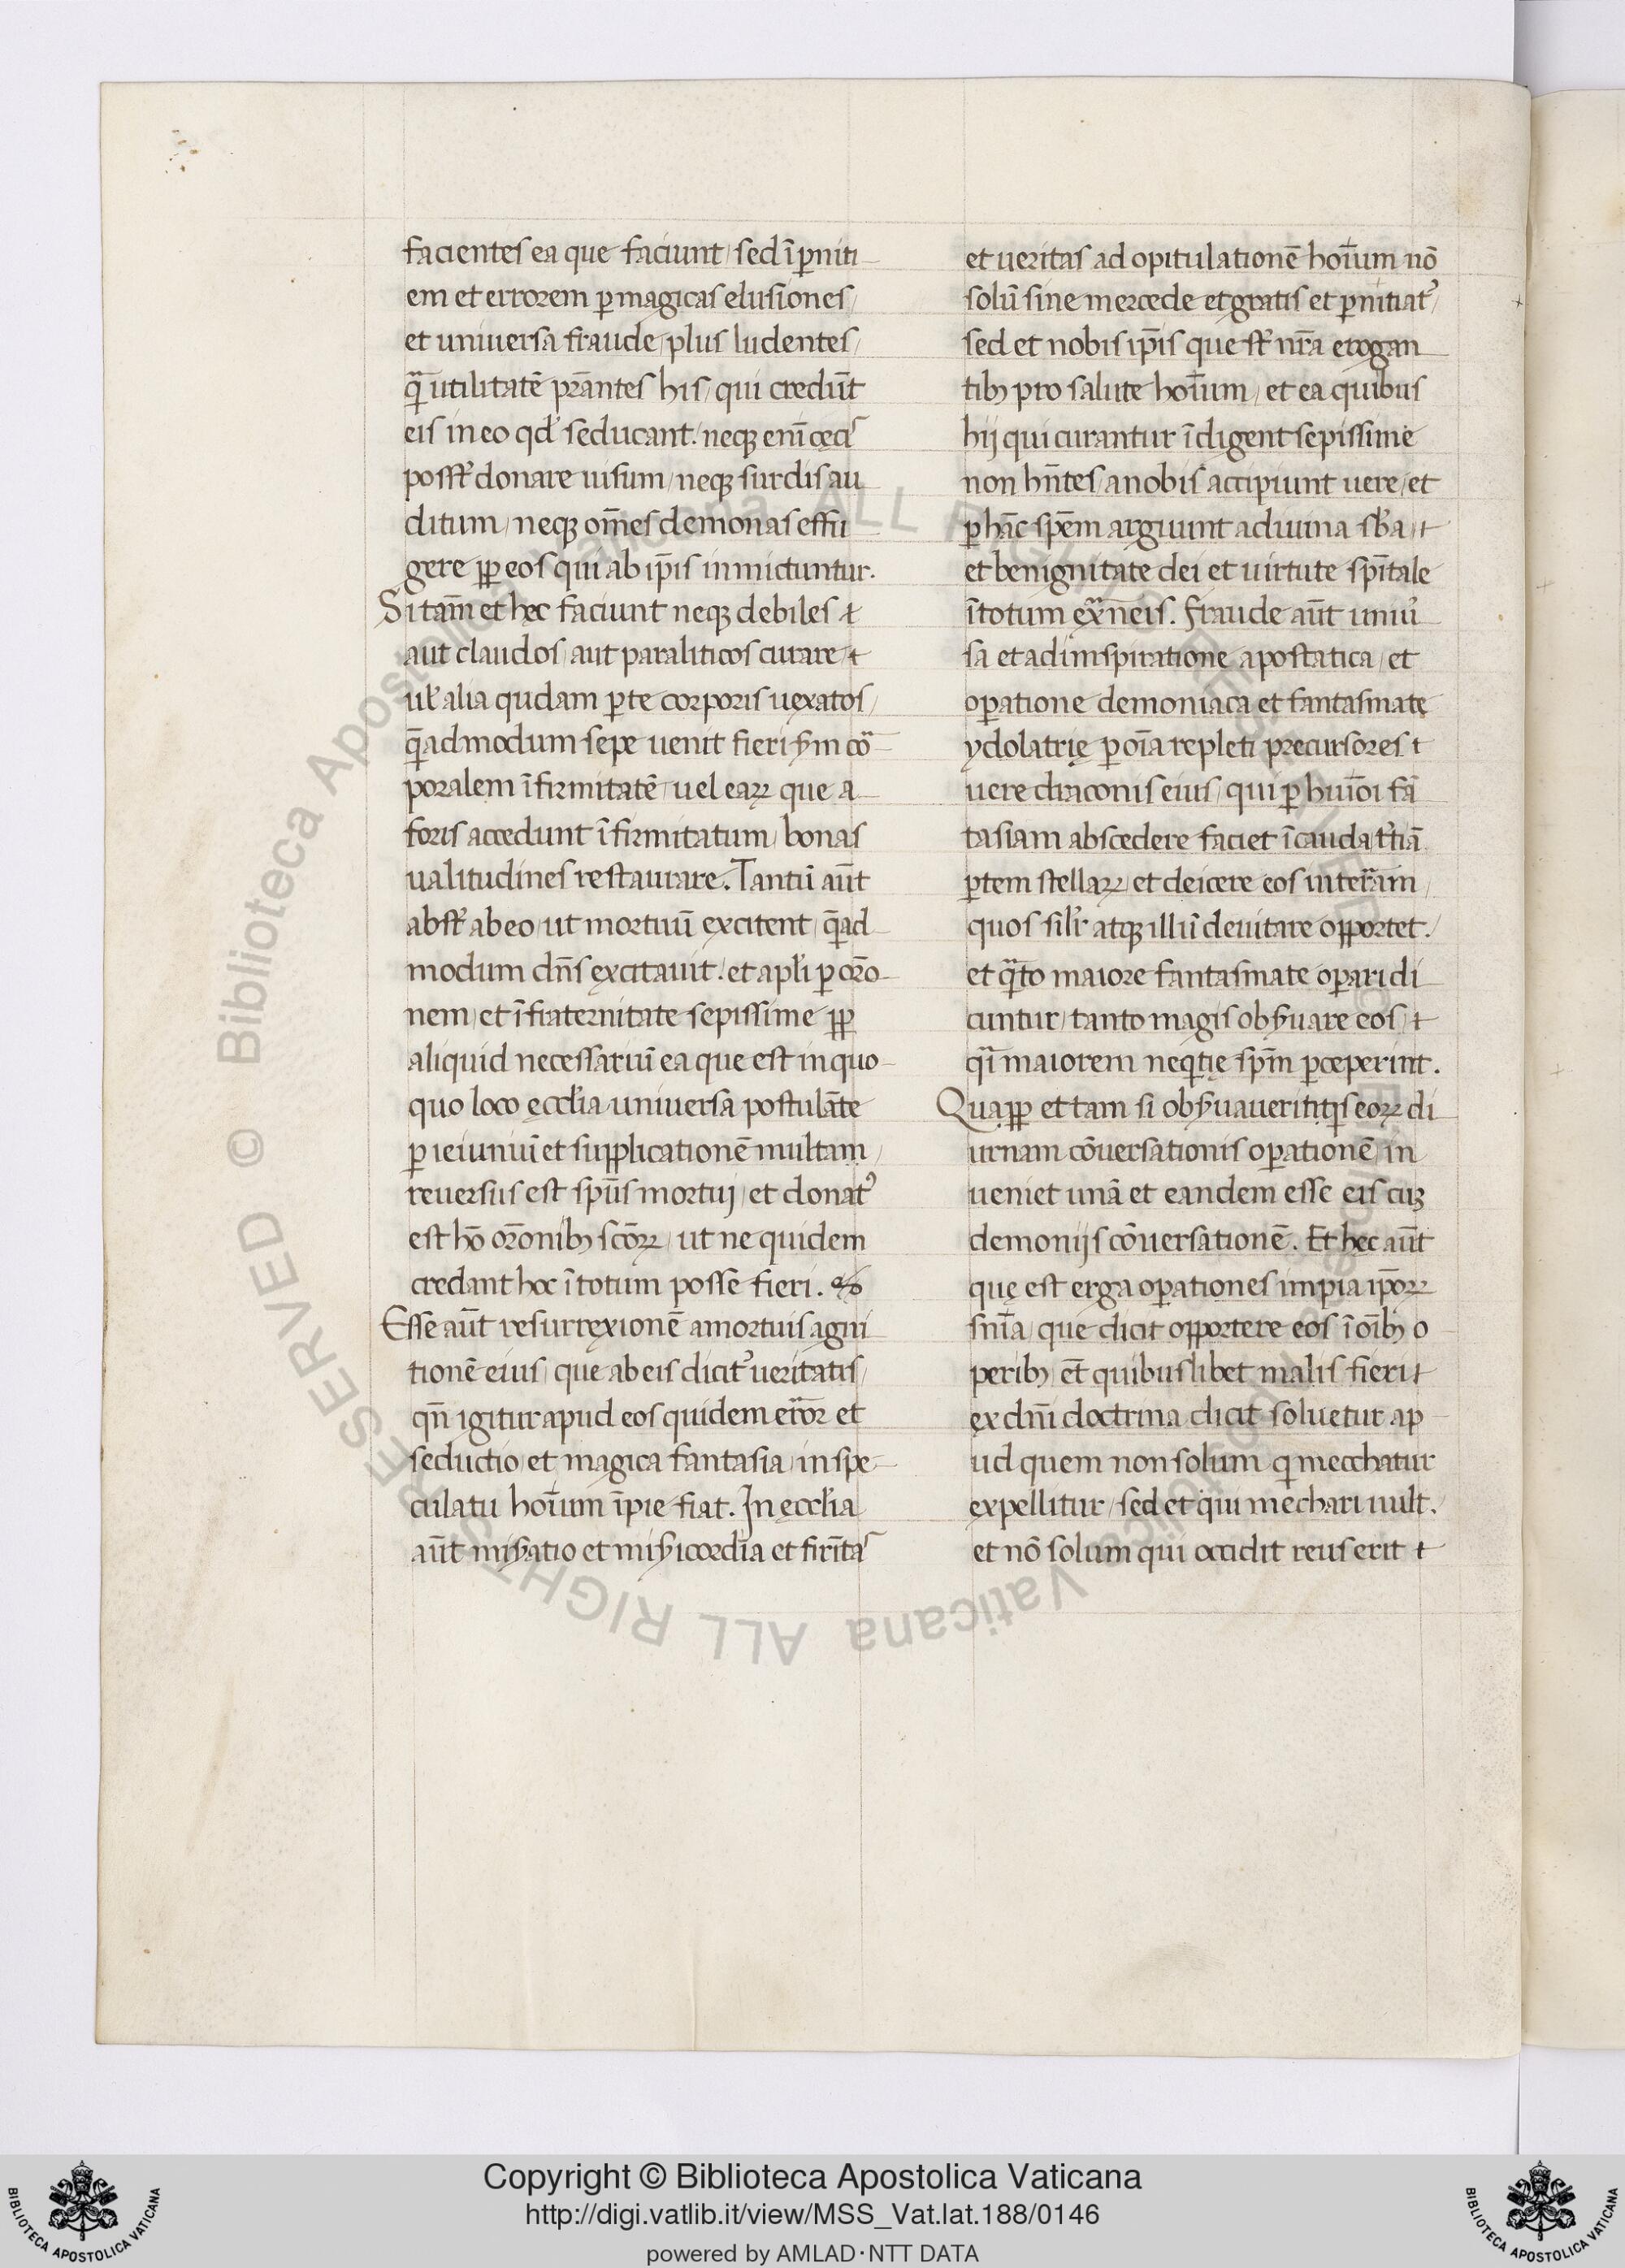 facientes ea que faciunt / sed ī ꝑniti
em et errorem ꝑ magicas elusiones /
et uniuersa fraude / plus ludentes /
qᷓ utilitatē p̄rantes his / qui credūt
eis in eo qđ seducant. neqꝫ enī cęcis
poss̄t donare uisum / neqꝫ surdis au
ditum / neqꝫ om̄es demonas effu
gere p̄p eos qui ab ip̄is inmictuntur.
Si tam̄ et hęc faciunt neqꝫ debiles
aut claudos / aut paraliticos curare
ul̄ alia qudam ꝑte corporis uexatos /
qᷓadmodum sepe uenit fieri ẜm cō
poralem īfirmitatē / uel eaꝝ que a
foris accedunt īfirmitatum / bonas
ualitudines restaurare. Tantū aūt
abst̄ ab eo / ut mortuū excitent / qᷓad
modum dn̄s excitauit. et apl̄i ꝑ oꝛ̄o
nem / et ī fraternitate sepissime p̄p
aliquid necessariū ea que est in quo
quo loco ęccl̄ia uniuersa postulāte
ꝑ ieiuniū et supplicationē multam /
reuersus est sp̄us mortuj / et donatꝰ
est hō oꝛ̄onibꝫ sc̄oꝝ / ut ne quidem
credant hoc ī totum posse fieri.
Esse aūt resurrexionē a mortuis agni
tionē eius / que ab eis dicit᷑ ueritatis /
qn̄ igitur apud eos quidem error et
seductio / et magica fantasia / in spe
culatu hoīum īpie fiat. In ęccl̄ia
aūt miẜatio et miẜicordia et firm̄tas
et ueritas ad opitulationē hoīum nō
solū sine mercede et gratis et ꝑnitiat᷑ /
sed et nobis ip̄is que st̄ nr̄a erogan
tibꝫ pro salute hoīum / et ea quibus
hij qui curantur īdigent sepissime
non hn̄tes / a nobis accipiunt uere / et
ꝑ hāc sp̄em arguunt a diuina sb̄a /
et benignitate dei et uirtute sp̄itale
ī totum exᷓneis. Fraude aūt uniuꝰ
sa et adinspiratione apostatica / et
oꝑatione demoniaca et fantasmate
ydolatrię ꝑ oīa repleti precursores
uere draconis eius / qui ꝑ huiōi fā
tasiam abscedere faciet ī cauda t̄tiā
ꝑtem stellaꝝ / et deicere eos in terram /
quos sil̄r atqꝫ illū deuitare opportet. /
et qᷓto maiore fantasmate oꝑari di
cuntur / tanto magis obẜuare eos /
qᷓi maiorem neq̇tię sp̄m ꝑceperint.
Quap̄p et tam si obẜuauerit q̇s eoꝝ di
urnam cōuersationis oꝑationē / in
ueniet unā et eandem esse eis cuꝫ
demonijs cōuersationē. Et hęc aūt
quę est erga oꝑationes impia ip̄oꝝ
sn̄ia / que dicit opportere eos ī oībꝫ o
peribꝫ / et̄ quibuslibet malis fieri
ex dn̄i doctrina dicit soluetur ap
ud quem non solum q̇ mecchatur
expellitur / sed et qui mechari uult. /
et nō solum qui occidit reus erit
Copyright © Biblioteca Apostolica Vaticana
http://digi.vatlib.it/view/MSS_Vat.lat.188/0146
powered by AMLAD·NTT DATA
BIBLIOTECA APOSTOLICA VATICANA
BIBLIOTECA APOSTOLICA VATICANA
© Biblioteca Apostolica Vaticana ALL RIGHTS RESERVED